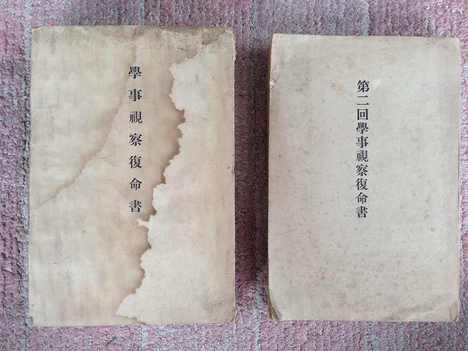 學事視察復命書
第二回學事視察復命書